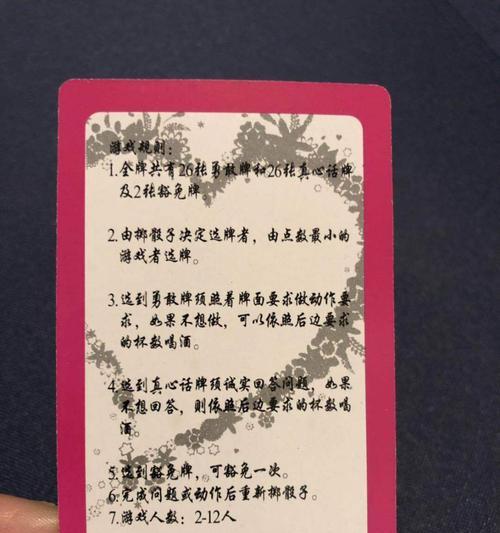 游戏规则：
1.全牌共有26张勇敢牌和26张真心话牌
及2张豁免牌
2.由掷骰子决定选牌者，由点数最小的
游戏者选牌。
3.选到勇敢牌须照着牌面要求做动作要
求，如果不想做，可以依照后边要求
的杯数喝酒。
4.选到真心话牌须诚实回答问题，如果
不想回答，则依照后边要求的杯数喝
酒。
5.选到豁免牌，可豁免一次。
6.完成问题或动作后重新掷骰子。
7.游戏人数：2-12人